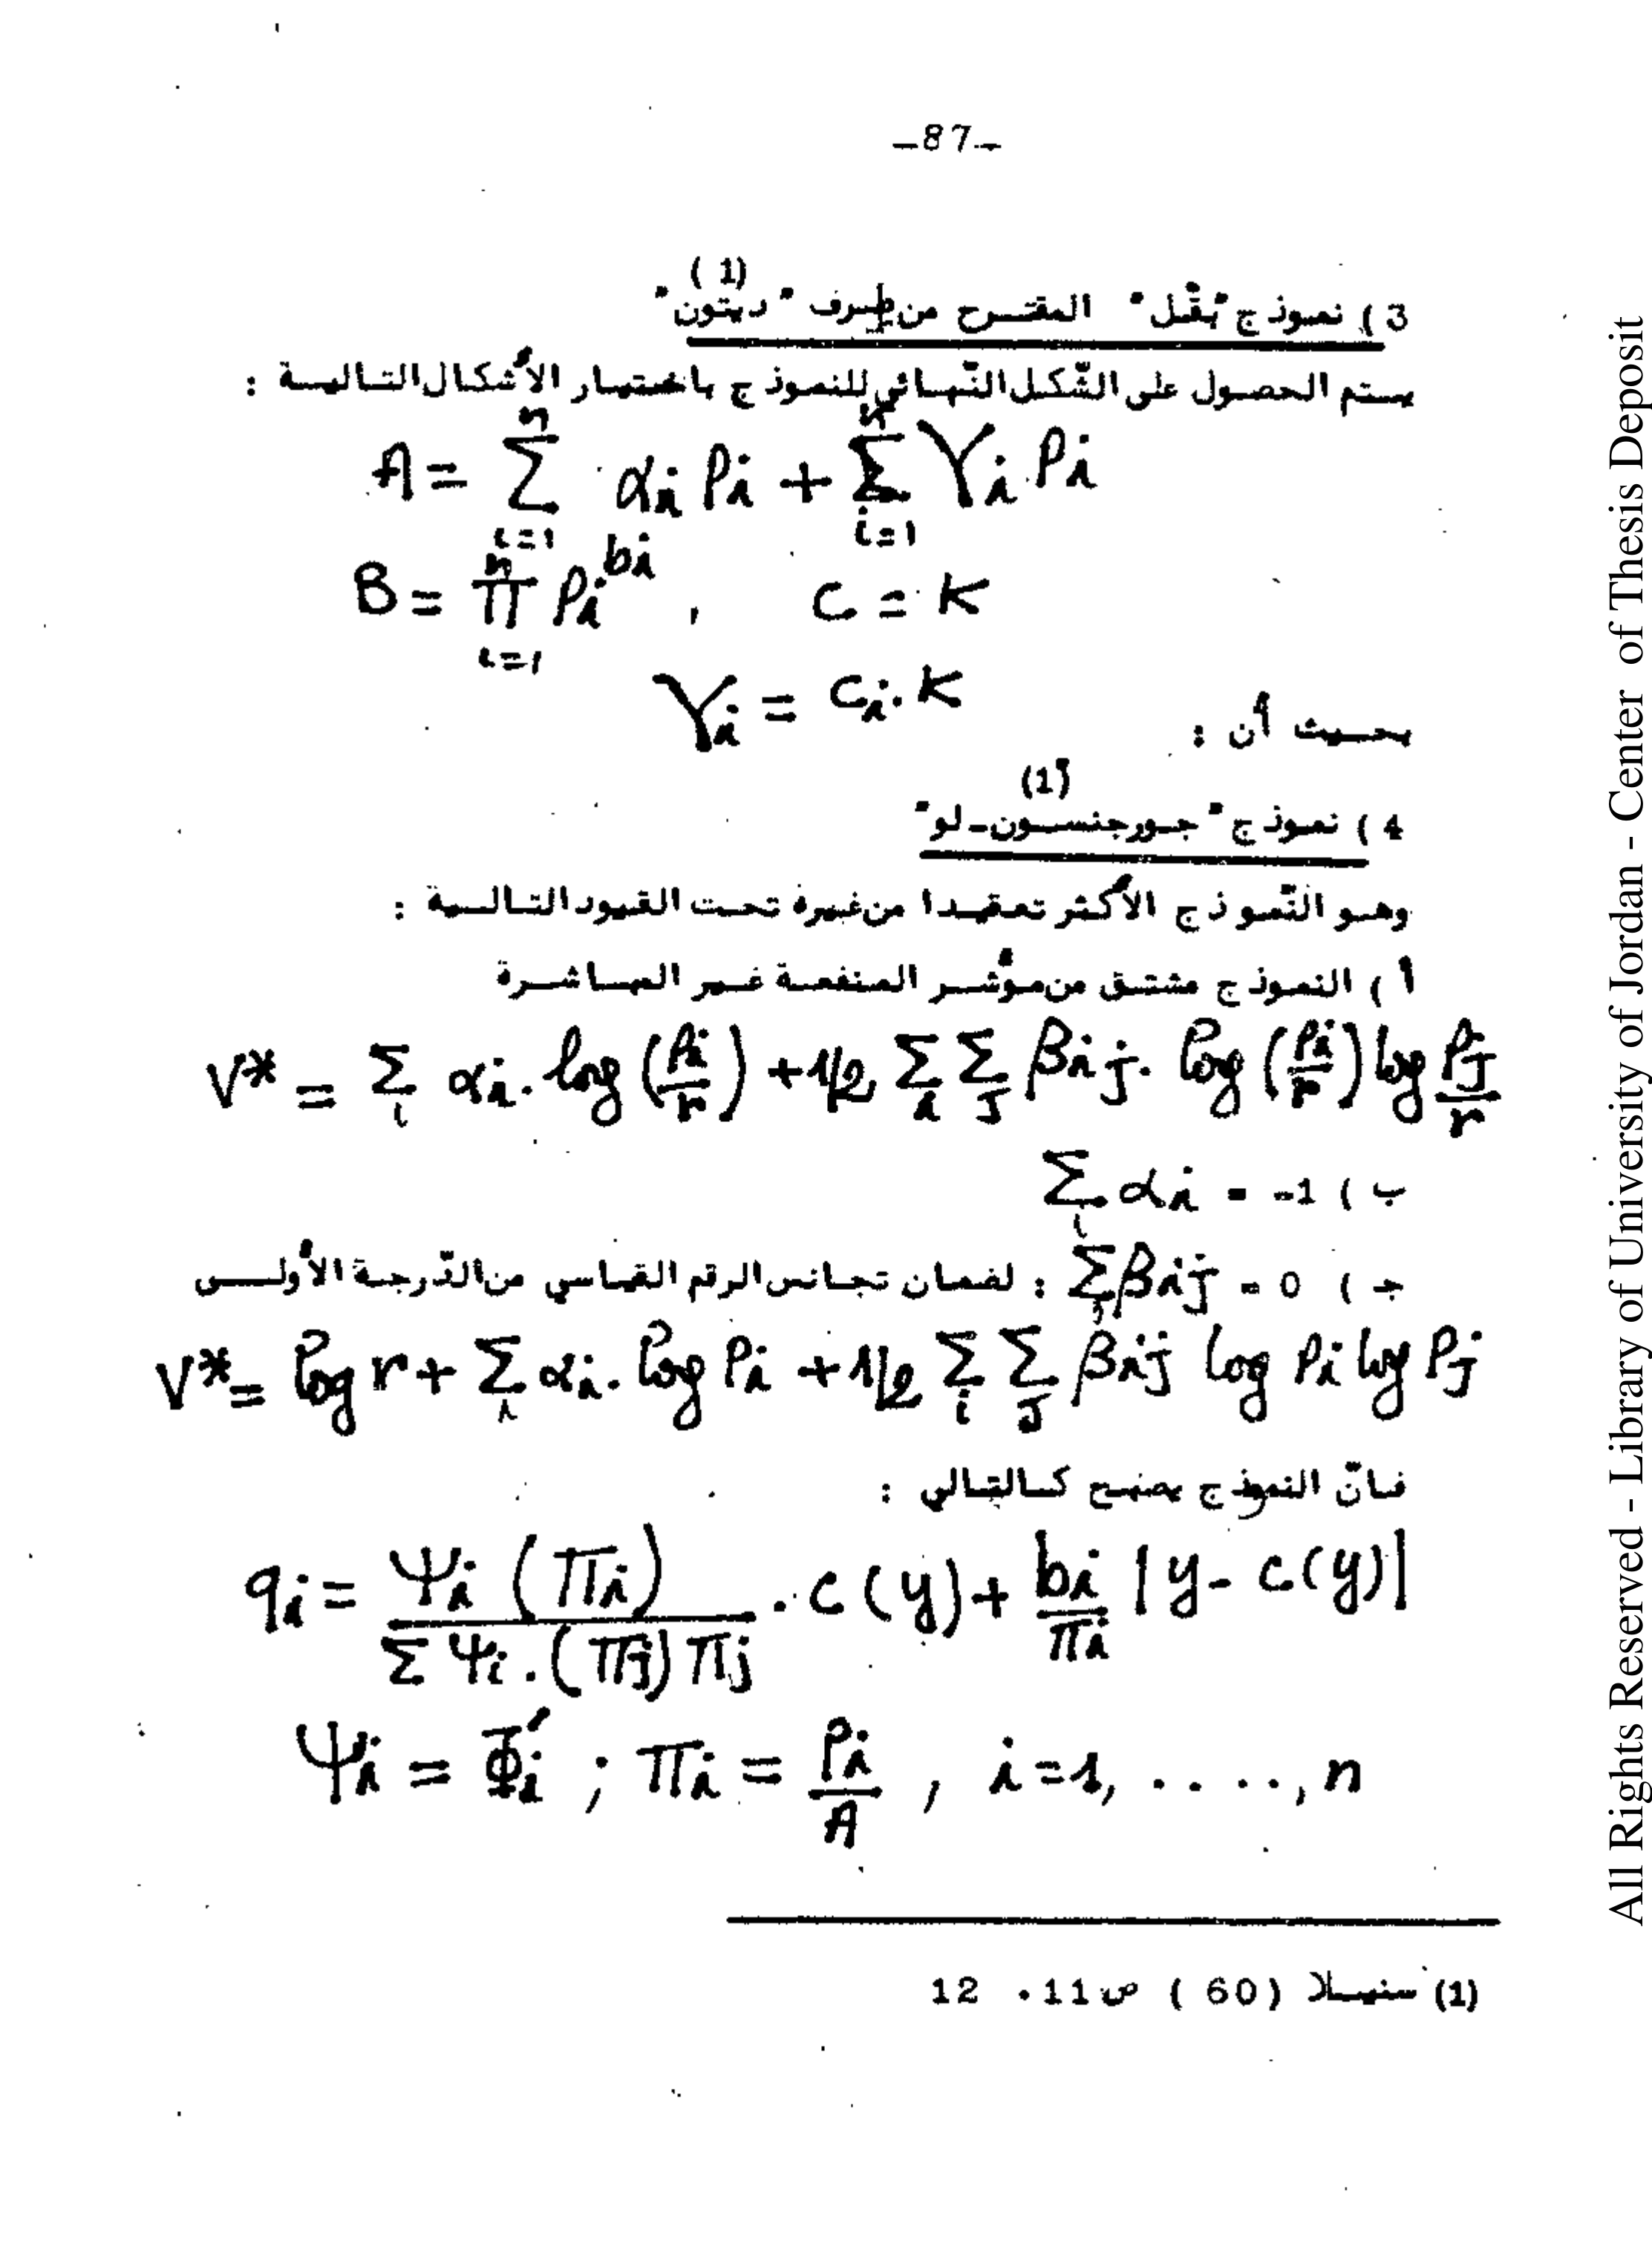 -87-
(1)
3) نموذج "بقل" المقترح من طرف "ديتون"
يتم الحصول على الشّكل النّهائي للنموذج باختيار الأشكال التالية :
A = \sum_{i=1}^{n} αi Pi + \sum_{i=1}^{n} γi Pi
B = \prod_{i=1}^{n} Pi^{bi} , C = K
γi = Ci . K
بحيث أن :
(1)
4) نموذج "جورجنسون-لو"
وهو النّموذج الأكثر تعقيدا من غيره تحت القيود التالية :
أ) النموذج مشتق من مؤشر المنفعة غير المباشرة
V* = \sum_i αi . log (Pi/r) + 1/2 \sum_i \sum_j βij . log (Pi/r) log Pj/r
ب) \sum_i αi = -1
جـ) \sum_j βij = 0 : لضمان تجانس الرقم القياسي من الدّرجة الأولى
V* = log r + \sum_i αi . log Pi + 1/2 \sum_i \sum_j βij log Pi log Pj
فانّ النموذج يصبح كالتالي :
qi = \frac{Ψi (Πi)}{Σ Ψi . (Πj) Πj} . C(y) + \frac{bi}{Πi} |y - C(y)|
Ψi = Φ'i ; Πi = Pi/A , i = 1, ...., n
(1) سنيلا (60) ص 11. 12
All Rights Reserved - Library of University of Jordan - Center of Thesis Deposit